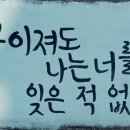 이져도
나는 너를
잊은 적 없